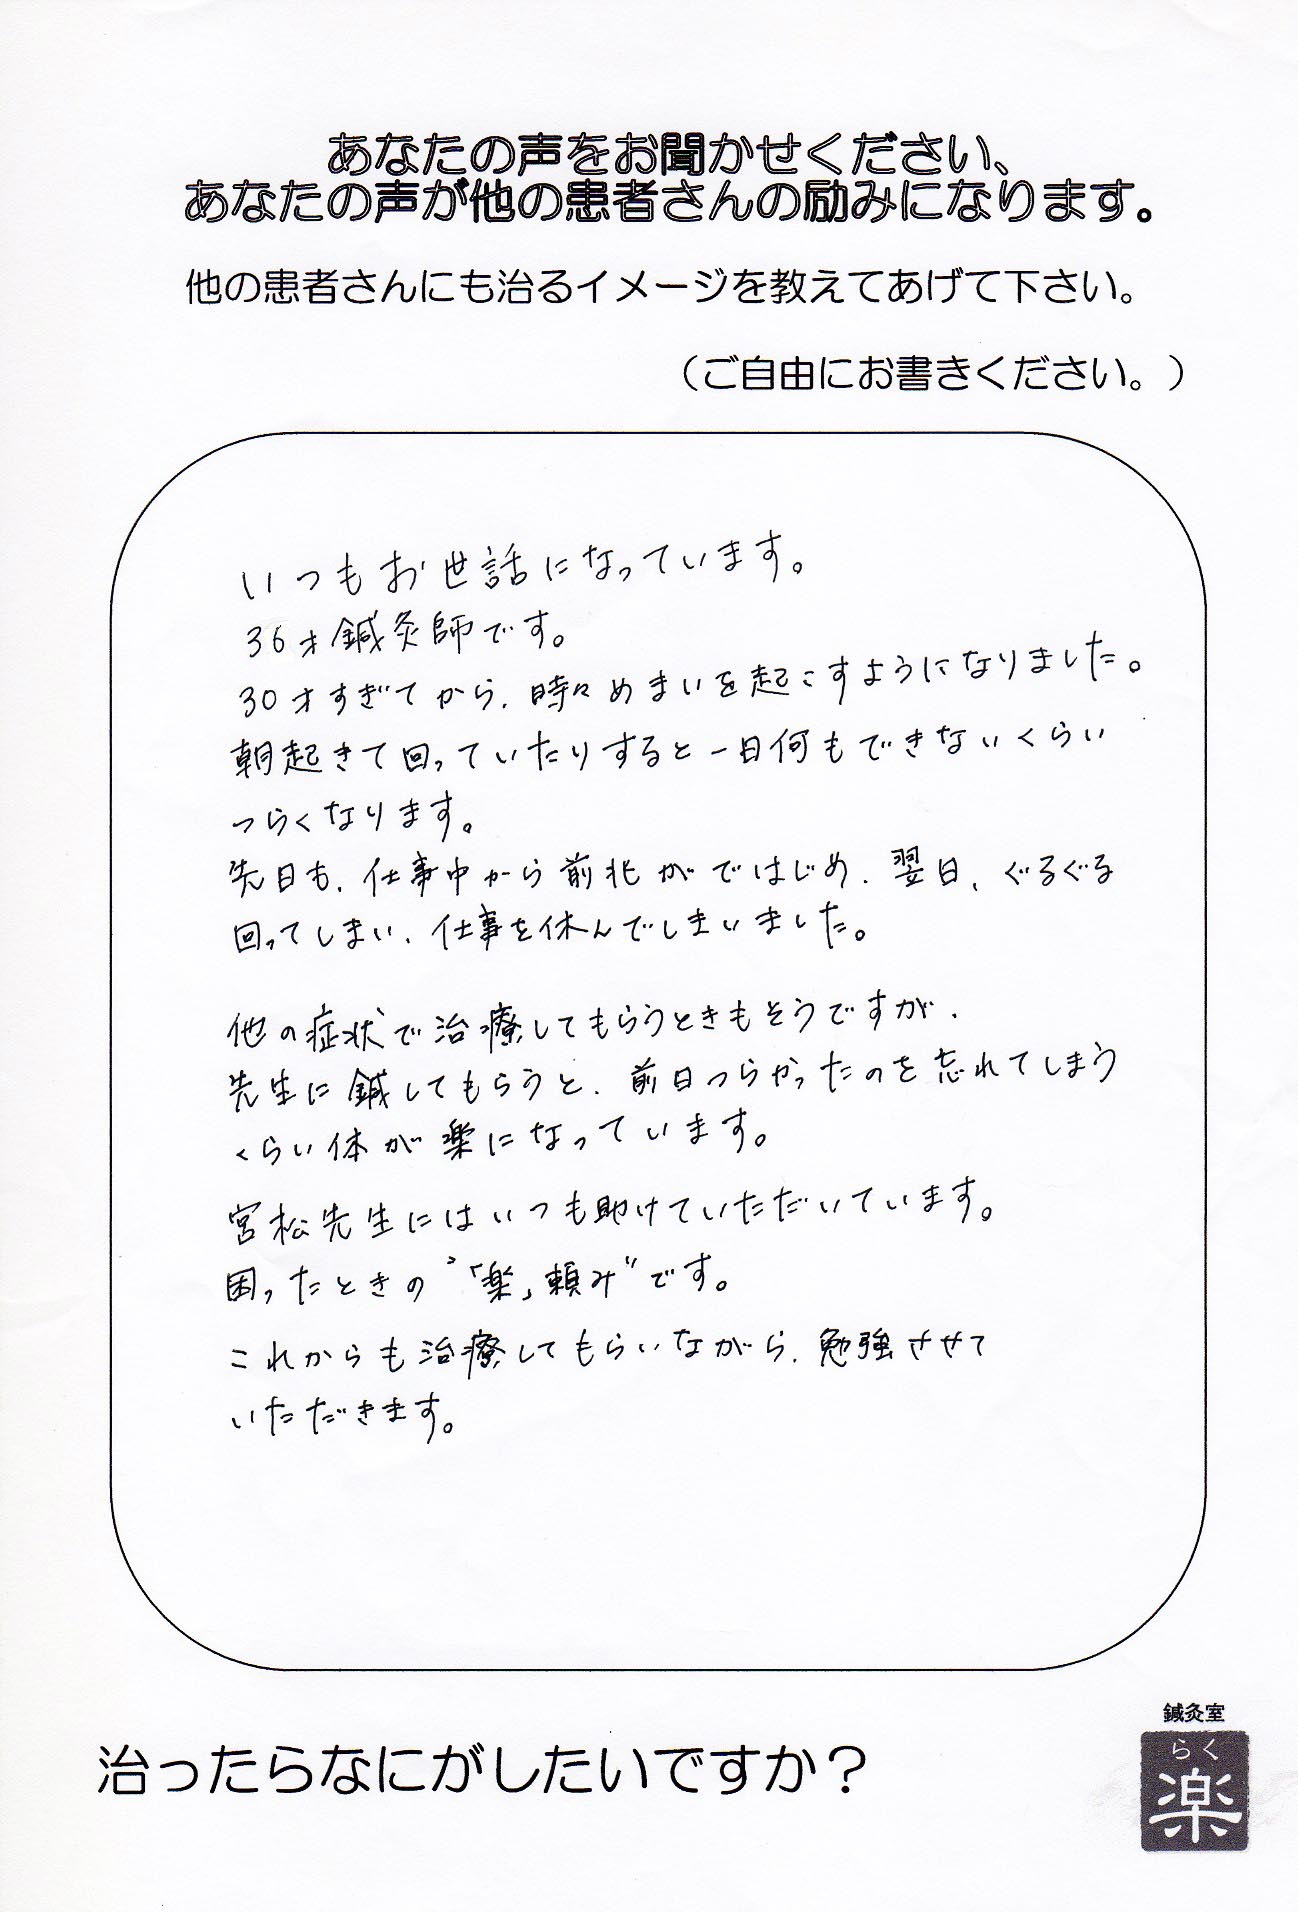 あなたの声をお聞かせください、
あなたの声が他の患者さんの励みになります。
他の患者さんにも治るイメージを教えてあげて下さい。
（ご自由にお書きください。）
いつもお世話になっています。
36才鍼灸師です。
30才すぎてから、時々めまいを起こすようになりました。
朝起きて回っていたりすると一日何もできないくらい
つらくなります。
先日も、仕事中から前兆がではじめ、翌日、ぐるぐる
回ってしまい、仕事を休んでしまいました。
他の症状で治療してもらうときもそうですが、
先生に鍼してもらうと、前日つらかったのを忘れてしまう
くらい体が楽になっています。
宮松先生にはいつも助けていただいています。
困ったときの〝「楽」頼み〟です。
これからも治療してもらいながら、勉強させて
いただきます。
治ったらなにがしたいですか？
鍼灸室
らく
楽